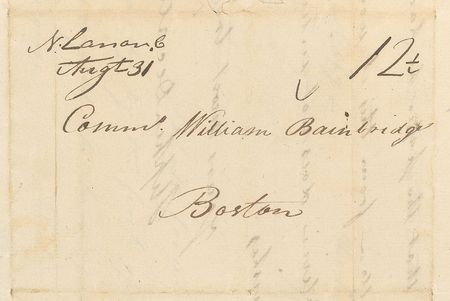 Augt 31
12½
Comme. William Bainbridge
Boston